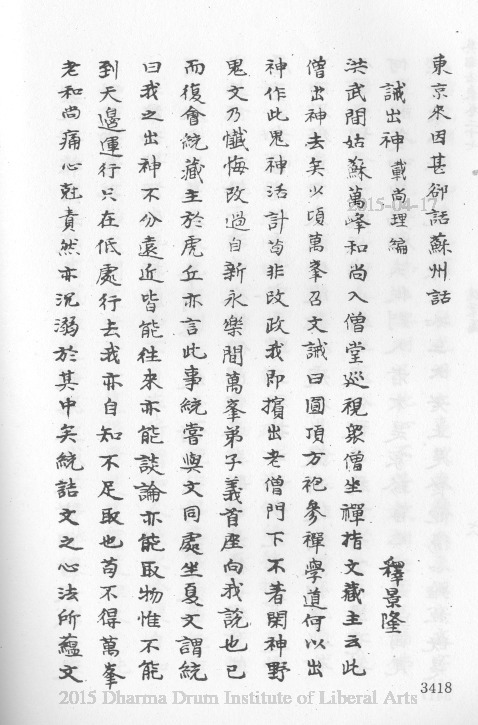 東京來因甚卻話蘇州話
誡出神 載尚理編 釋景隆
洪武間姑蘇萬峰和尚入僧堂巡視眾僧坐禪指文藏主云此
僧出神去矣少頃萬峯召文誡曰圓頂方袍參禪學道何以出
神作此鬼神活計苟非改政我即擯出老僧門下不著閑神野
鬼文乃懺悔改過自新永樂間萬峯弟子義首座向我說也已
而復會統藏主於虎丘亦言此事統嘗與文同處坐夏文謂統
曰我之出神不分遠近皆能往來亦能談論亦能取物惟不能
到天邊運行只在低處行去我亦自知不足取也苟不得萬峯
老和尚痛心尅責然亦沉溺於其中矣統詰文之心法所蘊文
3418
2015-04-17
2015 Dharma Drum Institute of Liberal Arts